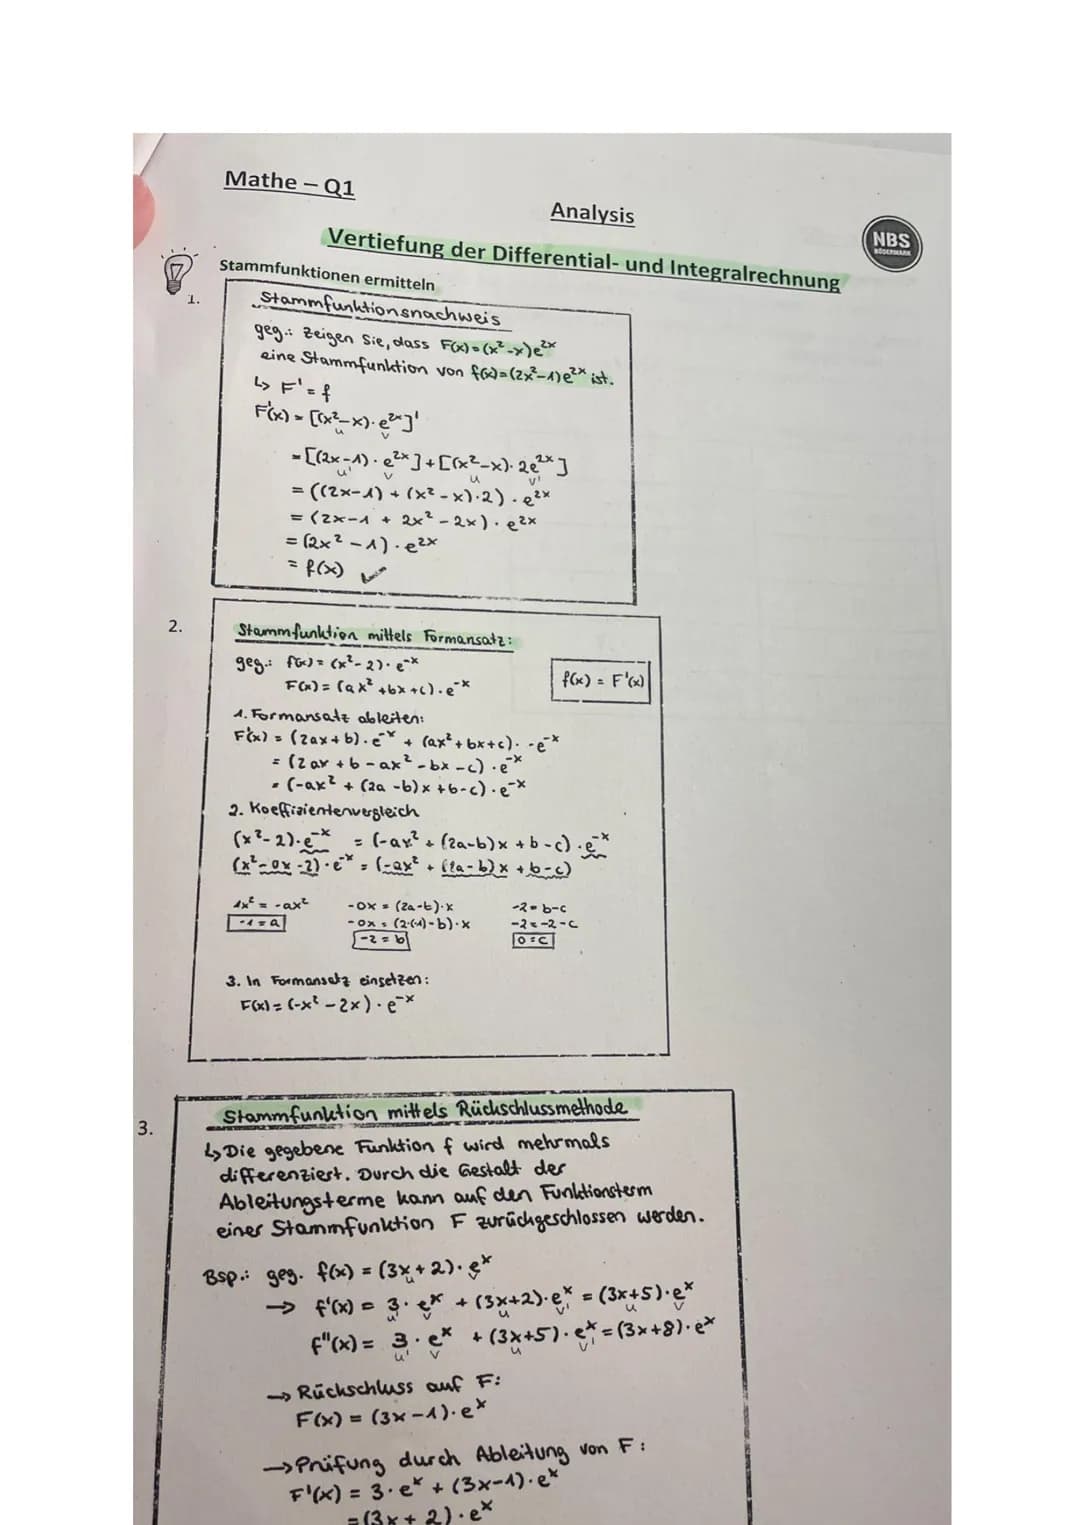 Mathe – Q1
Analysis
NBS
Vertiefung der Differential- und Integralrechnung
Stammfunktionen ermitteln
1.
Stammfunktionsnachweis
geg.: Zeigen Sie, dass F(x)=(x²-x)e^2x
eine Stammfunktion von f(x)=(2x²-1)e^2x ist.
↳ F' = f
F'(x) = [(x²-x)·e^2x]'
u v
= [(2x-1)·e^2x] + [(x²-x)·2e^2x]
u' v u v'
= ((2x-1) + (x²-x)·2)·e^2x
= (2x-1 + 2x² - 2x)·e^2x
= (2x² - 1)·e^2x
= f(x) ✓
2.
Stammfunktion mittels Formansatz:
geg.: f(x) = (x²-2)·e^-x
F(x) = (ax²+bx+c)·e^-x
f(x) = F'(x)
1. Formansatz ableiten:
F'(x) = (2ax+b)·e^-x + (ax²+bx+c)· -e^-x
= (2ax +b -ax² -bx -c)·e^-x
= (-ax² + (2a -b)x +b-c)·e^-x
2. Koeffizientenvergleich
(x²-2)·e^-x = (-ax² + (2a-b)x + b-c)·e^-x
(x²-0x-2)·e^-x = (-ax² + (2a-b)x + b-c)
1x² = -ax² -0x = (2a-b)·x -2 = b-c
-1 = a -0x = (2·(-1)-b)·x -2 = -2-c
-2 = b 0 = c
3. In Formansatz einsetzen:
F(x) = (-x² - 2x)·e^-x
3.
Stammfunktion mittels Rückschlussmethode
↳ Die gegebene Funktion f wird mehrmals
differenziert. Durch die Gestalt der
Ableitungsterme kann auf den Funktionsterm
einer Stammfunktion F zurückgeschlossen werden.
Bsp.: geg. f(x) = (3x+2)·e^x
u v
→ f'(x) = 3·e^x + (3x+2)·e^x = (3x+5)·e^x
u' v u v' u v
f''(x) = 3·e^x + (3x+5)·e^x = (3x+8)·e^x
u' v u v'
→ Rückschluss auf F:
F(x) = (3x-1)·e^x
→ Prüfung durch Ableitung von F:
F'(x) = 3·e^x + (3x-1)·e^x
= (3x+2)·e^x